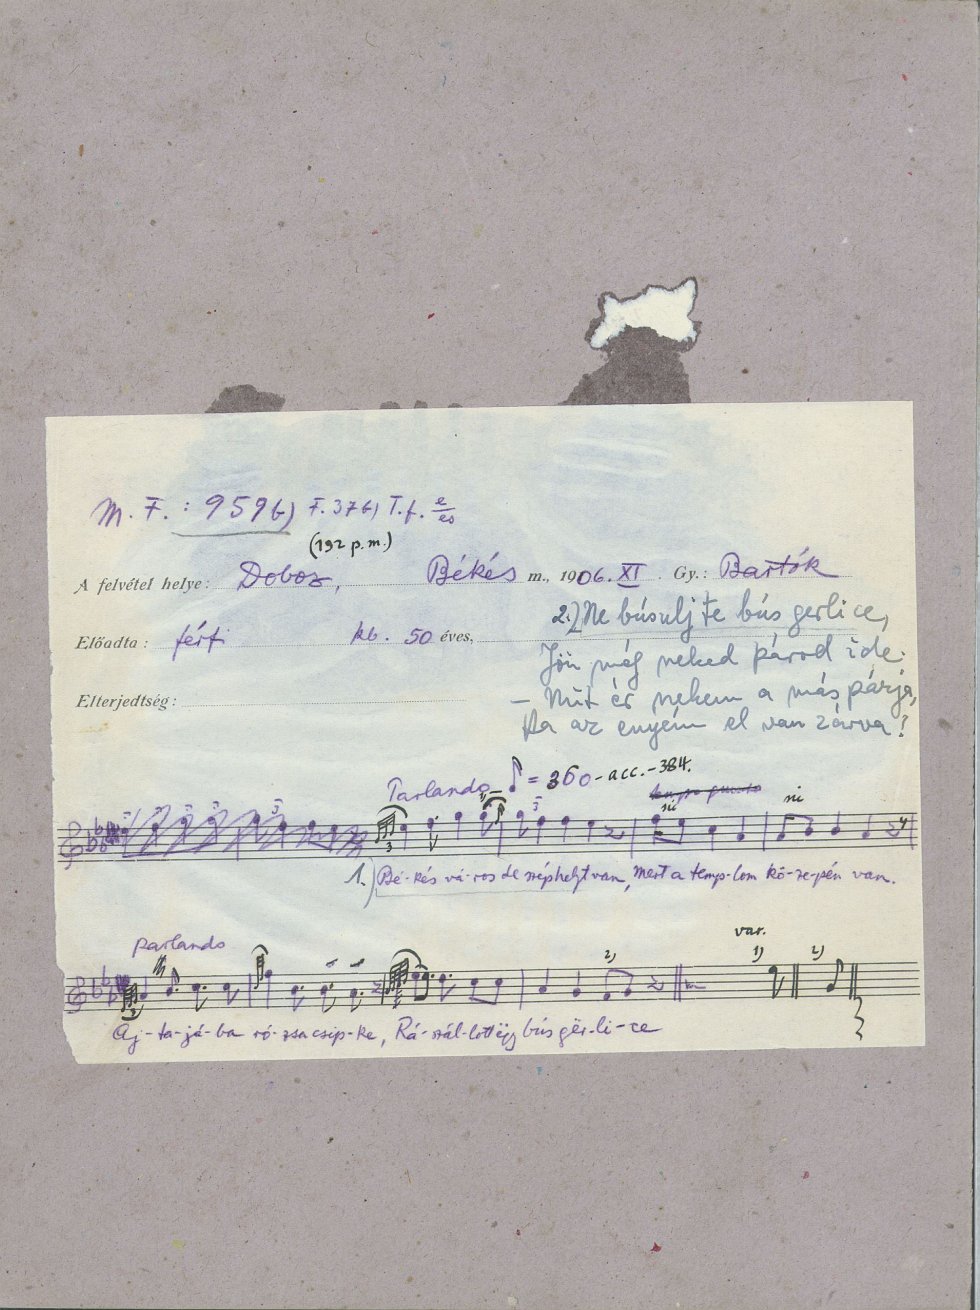 M. F. : 959b) F. 37b) T.f.
(192 p.m.)
A felvétel helye: Doboz, Békés m., 1906. XI. Gy.: Bartók
Előadta: férfi kb. 50 éves,
Elterjedtség:
2.) Ne búsulj te bús gerlice,
Jön még neked párod ide.
– Mit ér nekem a más párja,
Ha az enyém el van zárva?
Parlando ♪ = 360 - acc. - 384.
3 3 3 ni ni
1.) Bé-kés vá-ros de szép helyt van, mert a temp-lom kö-ze-pén van.
parlando 2) var. 1) 2)
Aj-ta-já-ba ró-zsa csip-ke, Rá-szál-lott ëgy bús gër-li-ce